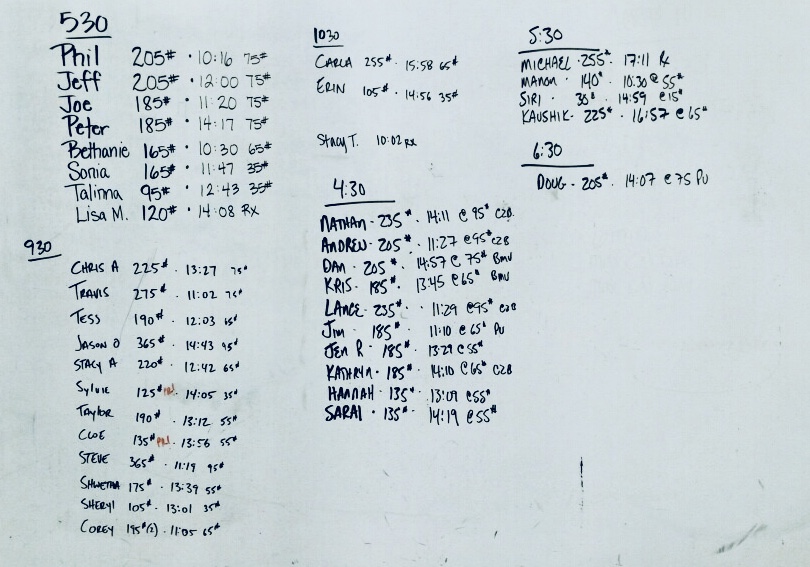 530
Phil 205# · 10:16 75#
Jeff 205# · 12:00 75#
Joe 185# · 11:20 75#
Peter 185# · 14:17 75#
Bethanie 165# · 10:30 65#
Sonia 165# · 11:47 35#
Talima 95# · 12:43 35#
Lisa M. 120# · 14:08 Rx
930
CHRIS A 225# · 13:27 75#
TRAVIS 275# · 11:02 75#
TESS 190# · 12:03 65#
JASON O 365# · 14:43 95#
STACY A 220# · 12:42 65#
Sylvie 125# · 14:05 35#
TAYLOR 190# · 13:12 55#
CLOE 135# · 13:56 55#
STEVE 365# · 11:19 95#
SHWETHA 175# · 13:39 55#
SHERYL 105# · 13:01 35#
COREY 195#(2) · 11:05 65#
1030
CARLA 255# · 15:58 65#
ERIN 105# · 14:56 35#
Stacy T. 10:02 Rx
4:30
NATHAN · 235# · 14:11 @ 95# C2B
ANDREW · 205# · 11:27 @95# C2B
DAN · 205# · 14:57 @ 75# BMU
KRIS · 185# · 13:45 @65# BMU
LANCE · 235# · 11:29 @95# C2B
Jim · 185# · 11:10 @ 65# PU
JEN R · 185# · 13:29 @ 55#
KATHRYN · 185# · 14:10 @65# C2B
HANNAH · 135# · 13:09 @55#
SARAI · 135# · 14:19 @55#
5:30
MICHAEL · 255# · 17:11 Rx
MANON · 140# · 10:30 @ 55#
SIRI · 30# · 14:59 @15#
KAUSHIK · 225# · 16:57 @ 65#
6:30
DOUG · 205# · 14:07 @ 75 PU